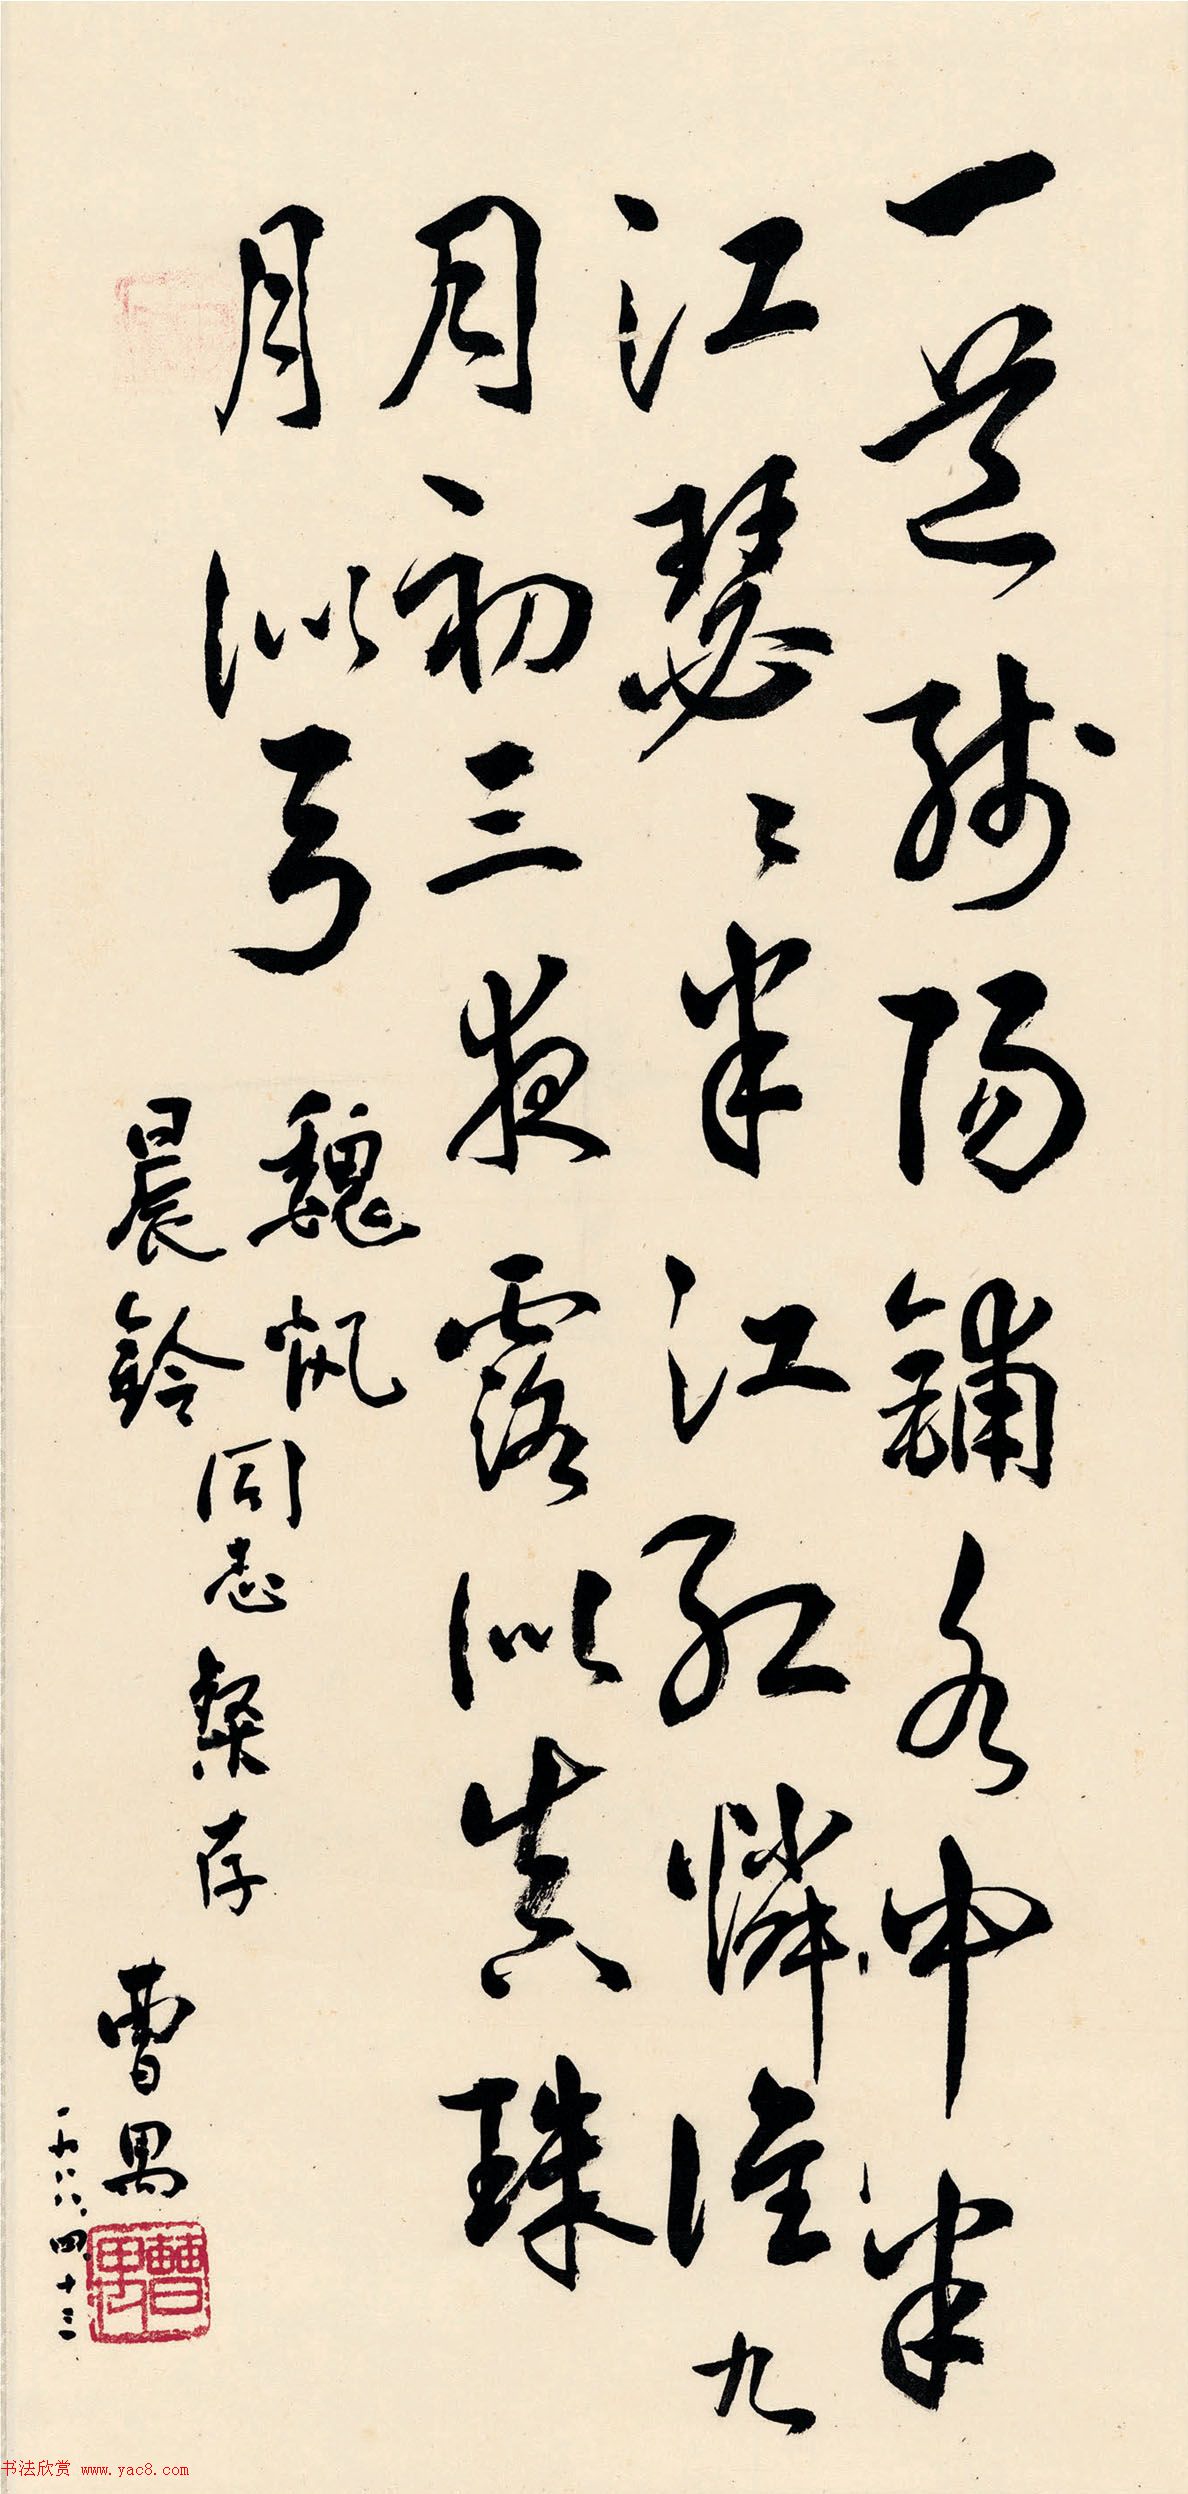 一道殘陽鋪水中半
江瑟〻半江紅憐九
月初三夜露似真珠
月似弓
魏帆
晨鈴
同志粲存
曹禺
一九八八.四.十三
曹禺
书法欣赏 www.yac8.com